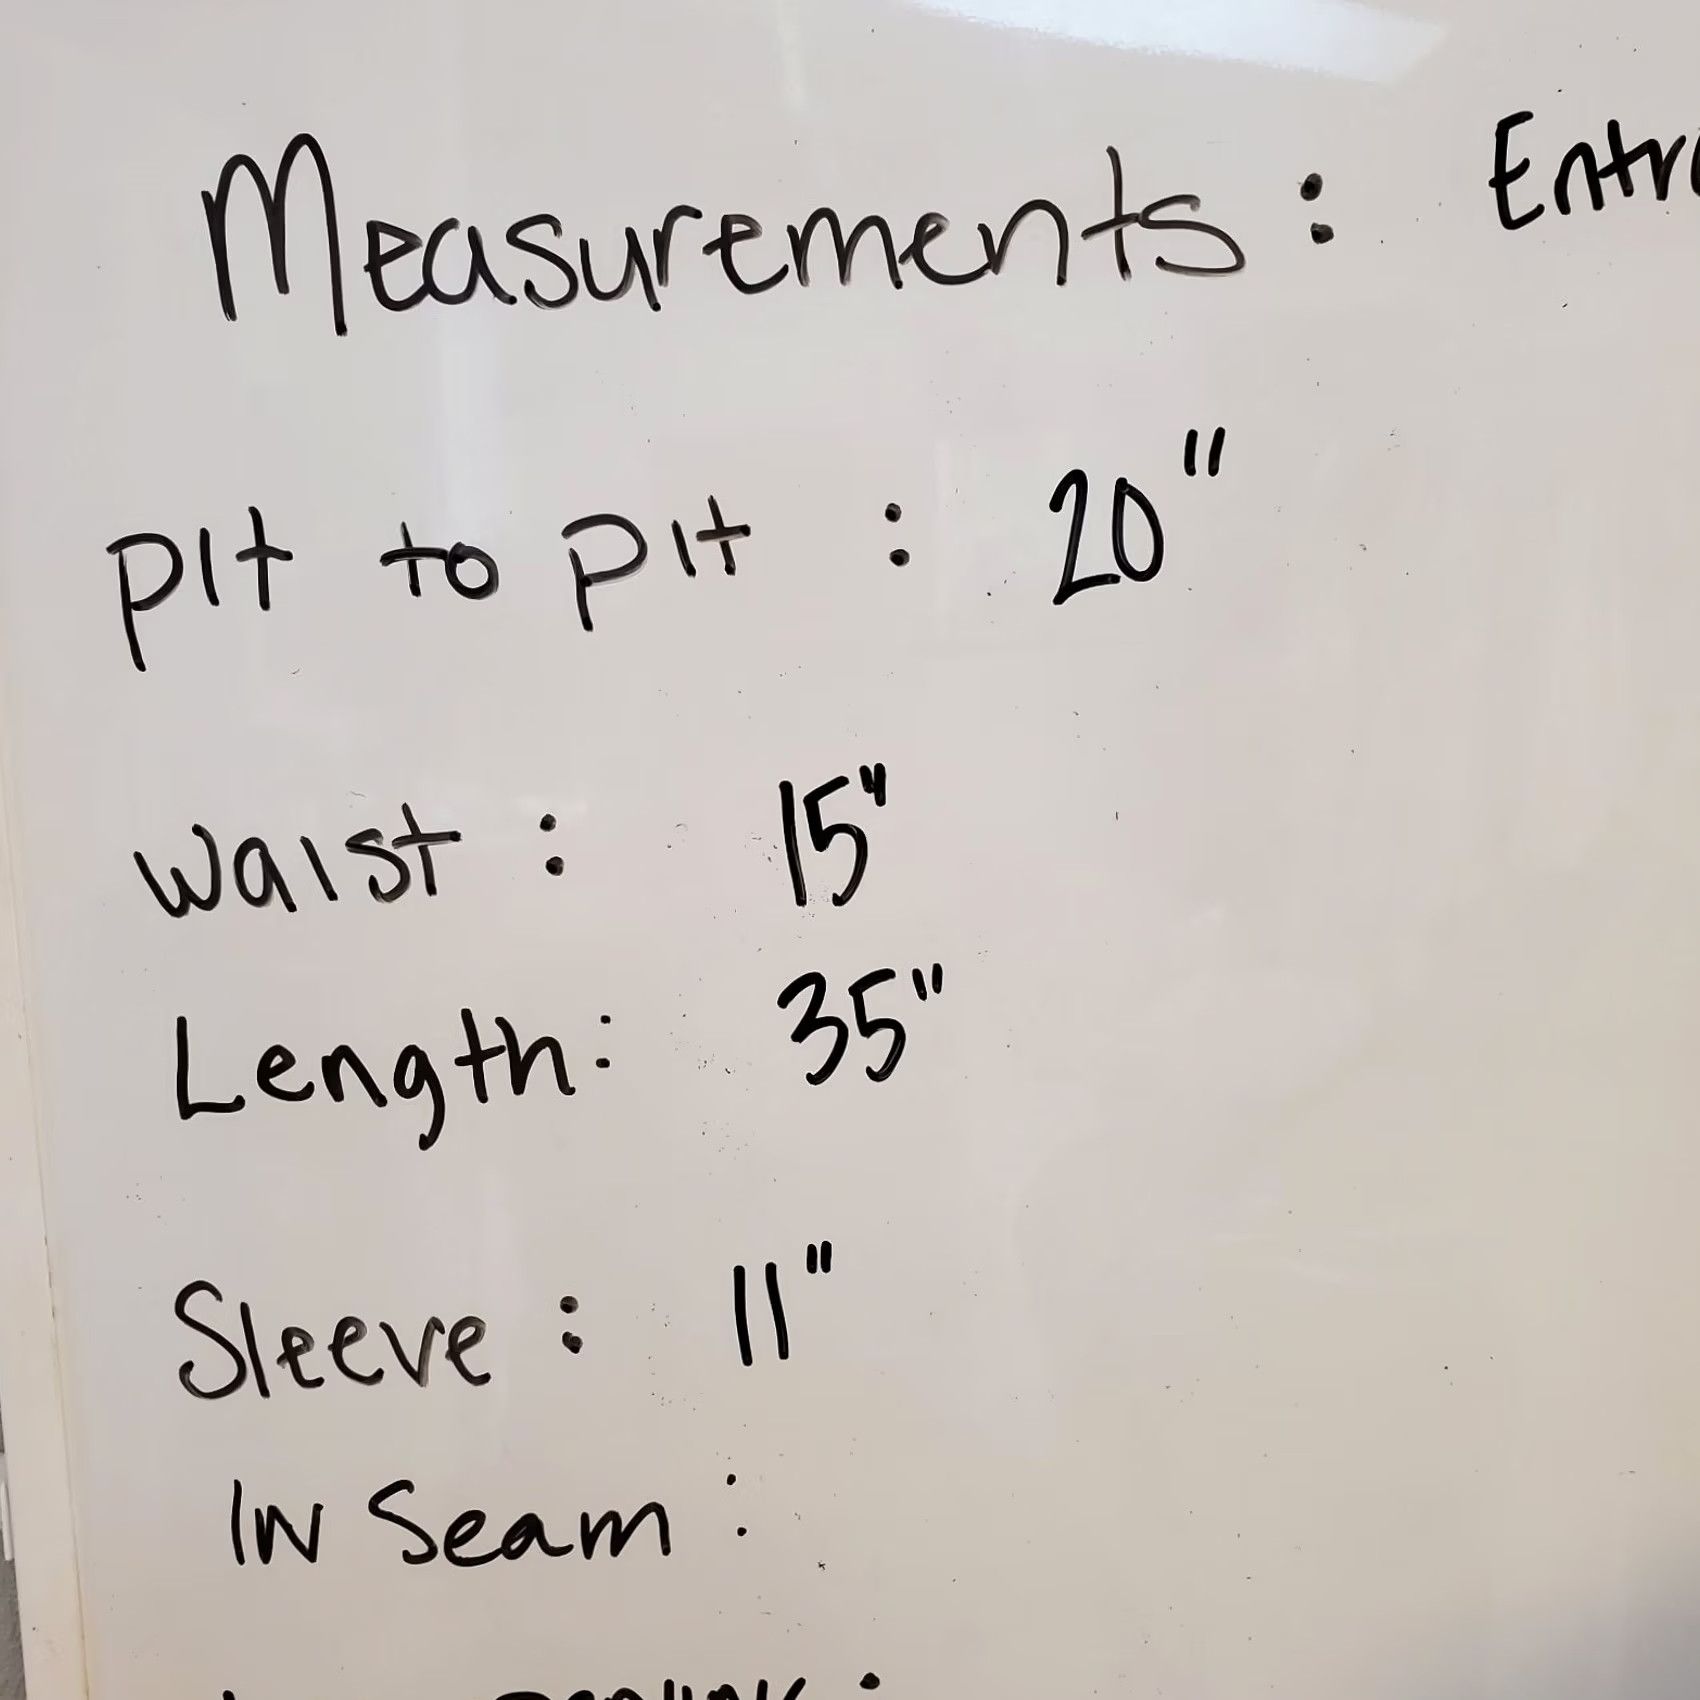 Measurements:
PIt to PIt : 20"
Waist : 15"
Length: 35"
Sleeve : 11"
IN Seam :